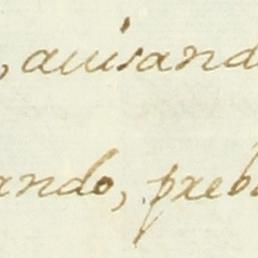 , auisand
ando, preb